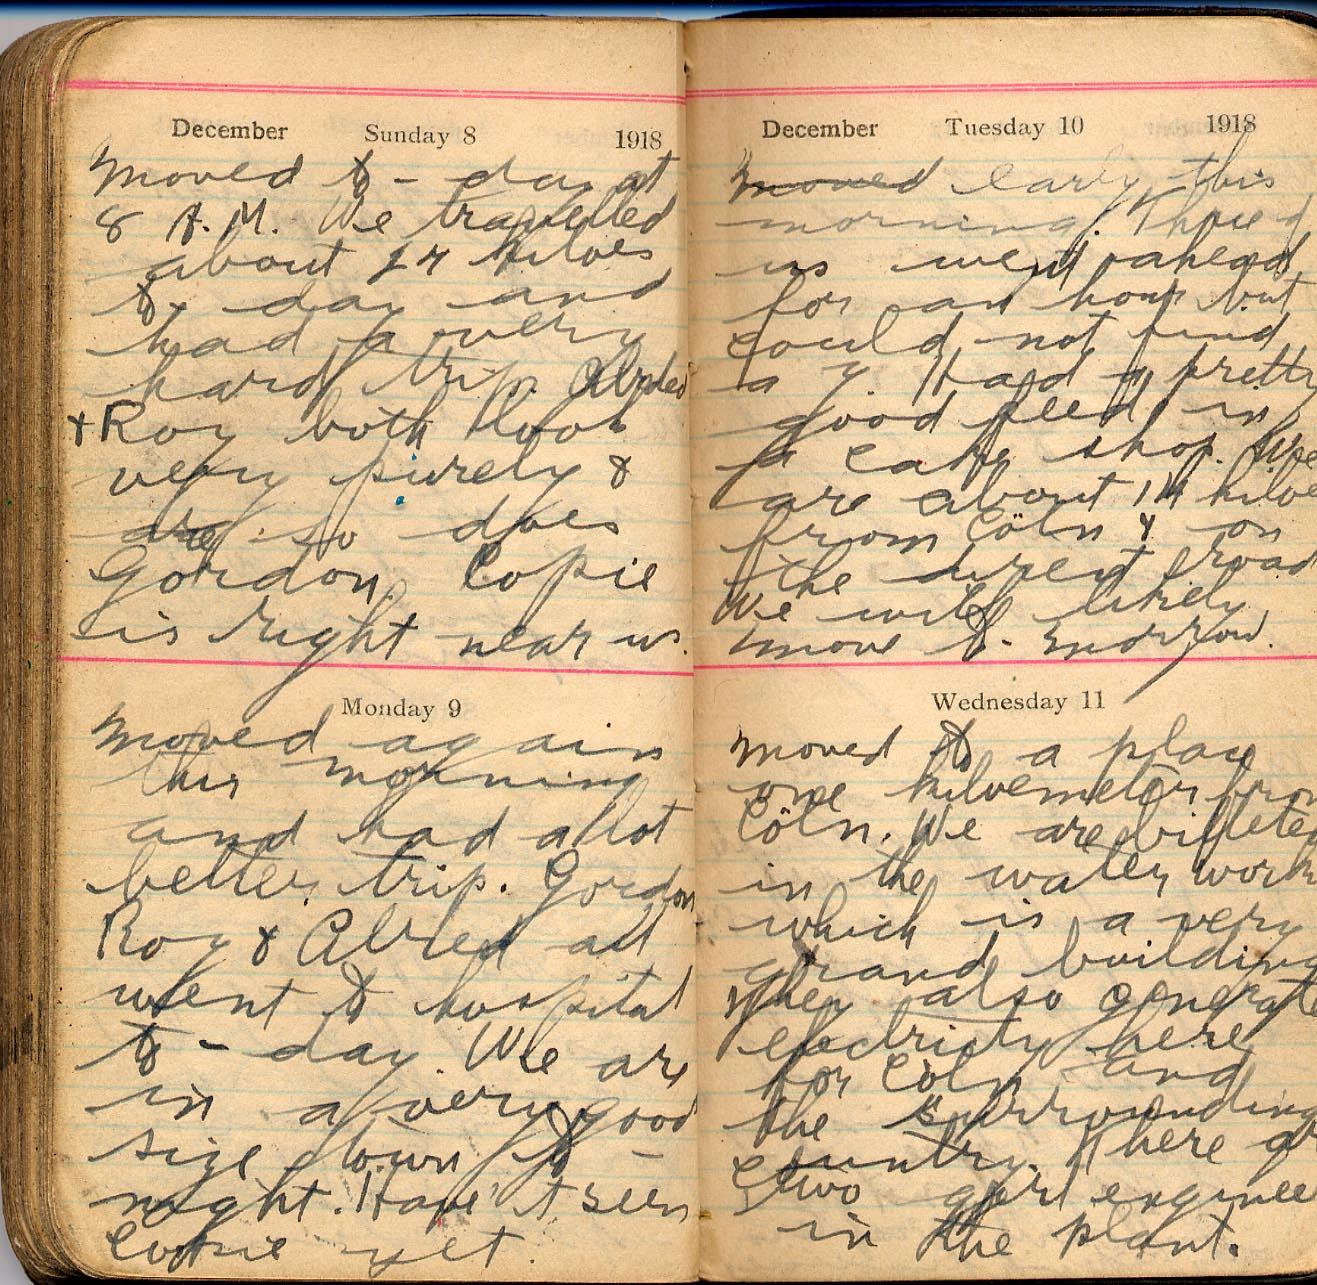 December Sunday 8 1918
Moved to-day at
8 A.M. We travelled
about 24 kiloes
to day and
had a very
hard trip. Alred
& Roy both look
very purely &
are so does
Gordon. Copie
is right near us.
Monday 9
Moved again
this morning
and had a lot
better trip. Gordon
Roy & Alred all
went to hospital
to-day. We are
in a very good
size town to-
night. Have't seen
Copie yet.
December Tuesday 10 1918
Moved early this
morning. Three of
us went ahead
for an hour but
could not find
a Y. Had a pretty
good feed in
a cake shop. We
are about 14 kiloe
from Cöln & on
the direct road
We will likely
move to-morrow.
Wednesday 11
Moved to a place
one kiloemeter from
Cöln. We are billeted
in the water work
which is a very
grand building
They also generate
electristy here
for Cöln and
the surrounding
country. There are
two girl enginee
in the plant.